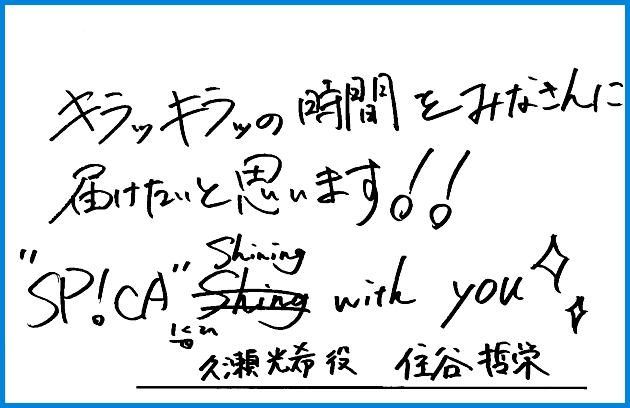 キラッキラッの時間をみなさんに
届けたいと思います!!
"SP!CA" Shining with you
久瀬光希役 住谷哲栄